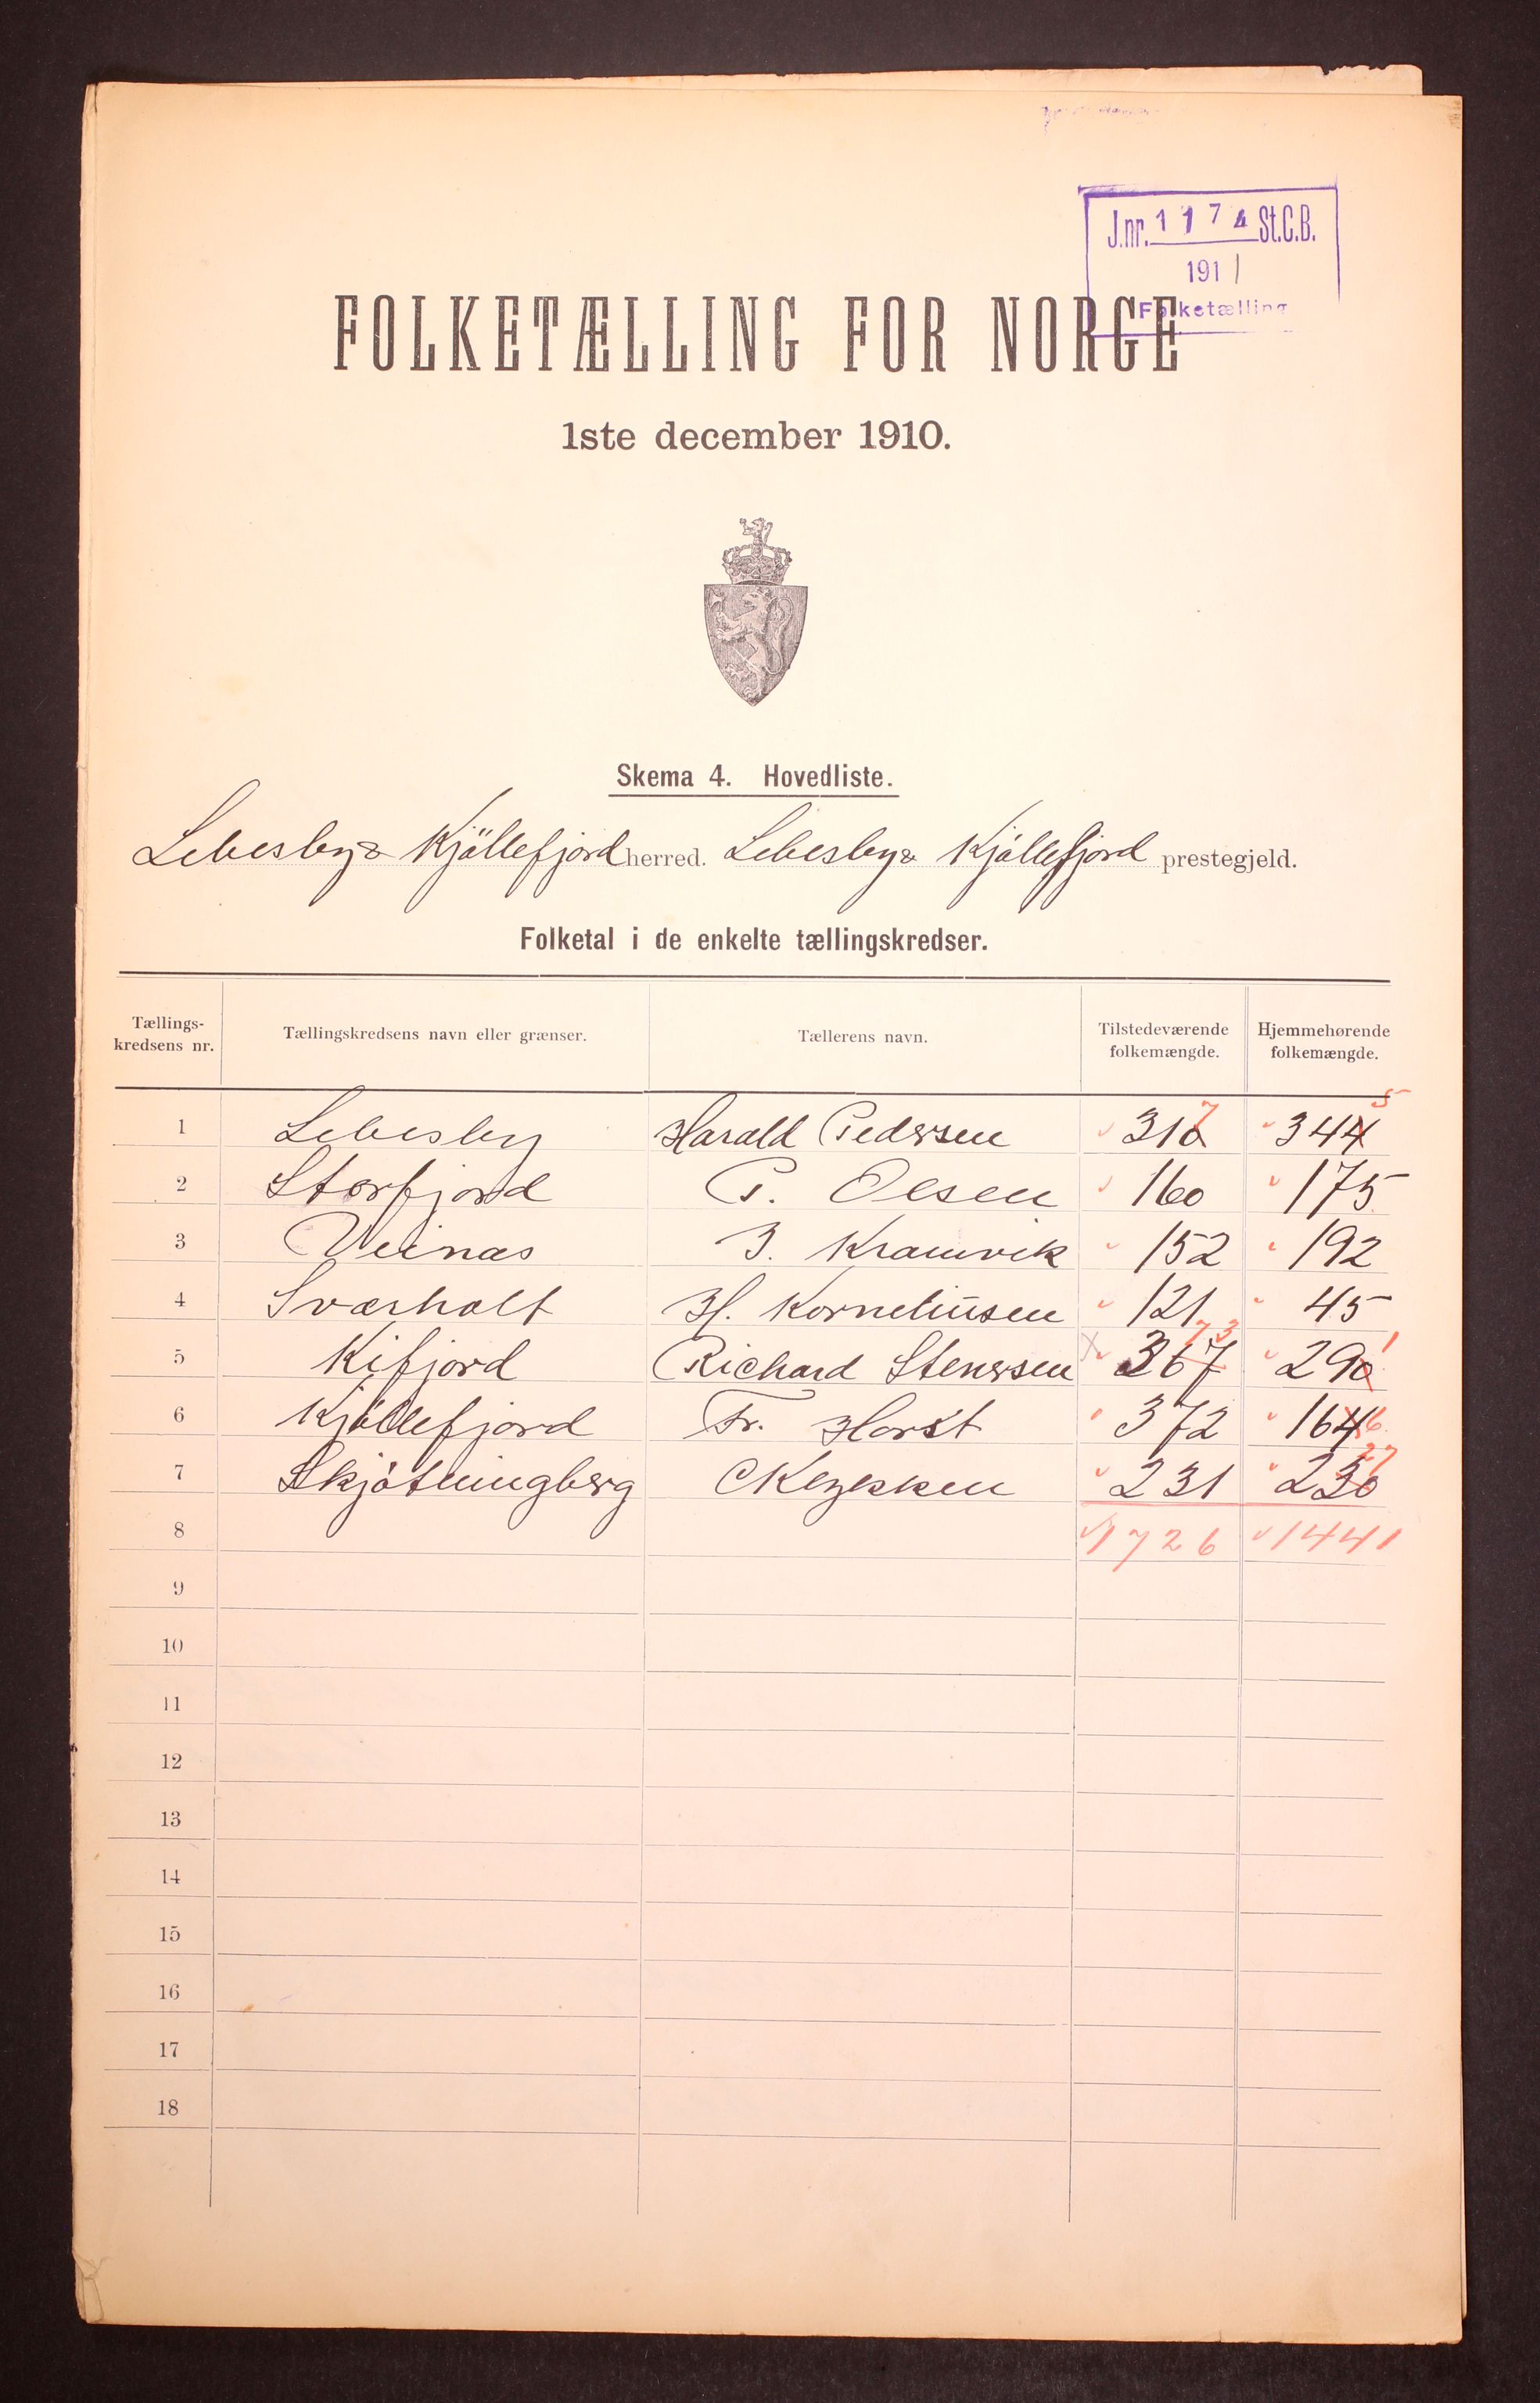 J.nr. 1174 St.C.B.
1911
Folketælling
FOLKETÆLLING FOR NORGE
1ste december 1910.
Skema 4. Hovedliste.
Lebesby & Kjöllefjord herred. Lebesby & Kjöllefjord prestegjeld.
Folketal i de enkelte tællingskredser.
Tællings-kredsens nr. Tællingskredsens navn eller grænser. Tællerens navn. Tilstedeværende folkemængde. Hjemmehørende folkemængde.
1 Lebesby Harald Pedersen 310 7 344 5
2 Storfjord P. Olsen 160 175
3 Veinæs J. Kramvik 152 192
4 Sværholt H. Korneliusen 121 45
5 Kifjord Richard Stenersen 367 73 290 1
6 Kjöllefjord Fr. Horst 372 164 6
7 Skjötningberg 231 230 27
8 1726 1441
9
10
11
12
13
14
15
16
17
18